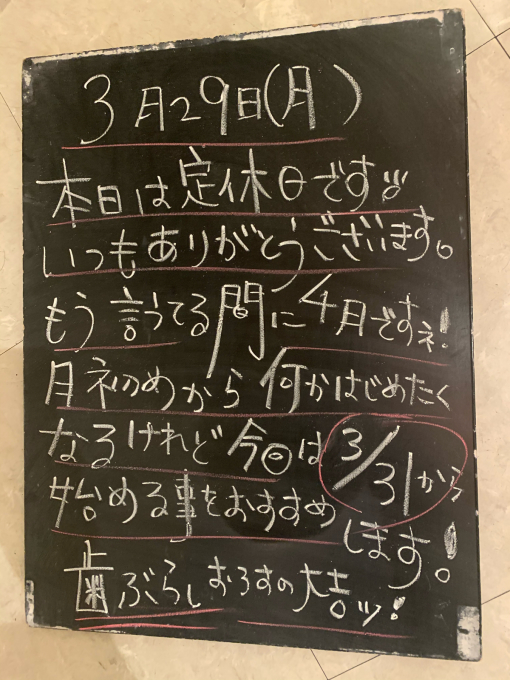 3月29日(月)
本日は定休日です!!
いつもありがとうございます。
もう言ってる間に4月ですネ!
月初めから何かはじめたく
なるけれど今回は3/31から
始める事をおすすめ
します!
歯ぶらしおろすの大吉ッ!